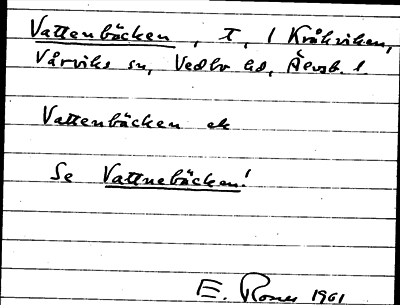 Vattenbäcken, T, 1 Kråkviken,
Vårviks sn, Vedbo hd, Älvsb. l.
Vattenbäcken ek
Se Vattnebäcken!
E. 1961